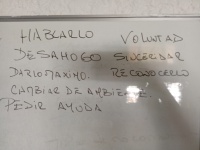 HABLARLO VOLUNTAD
DESAHOGO SINCERDAR
DARLO MAXIMO. RECONOCERLO
CAMBIAR DE AMBIENTE.
PEDIR AYUDA